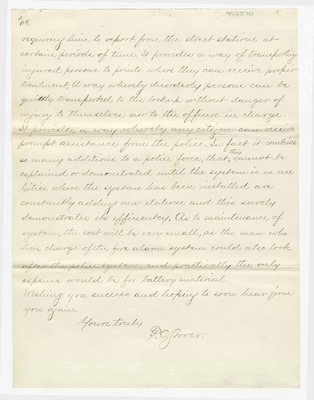 requiring him to report from the street stations at
certain periods of time. It provides a way of transporting
injured persons to points where they can receive proper
treatment. A way whereby disorderly persons can be
quietly transported to the lockup without danger of
injury to themselves nor to the officers in charge.
It provides a way whereby any citizen can receive
prompt assistance from the police. In fact it combines
so many additions to a police force, that they cannot be
explained or demonstrated until the system is in use
Cities where the system has been installed are
constantly adding new stations and this surely
demonstrates its efficiency. As to maintenance of
system, the cost will be very small, as the man who
has charge of the fire alarm system could also look
after the police system and practically the only
expense would be for battery material.
Wishing you success and hoping to soon hear from
you again
Yours truly